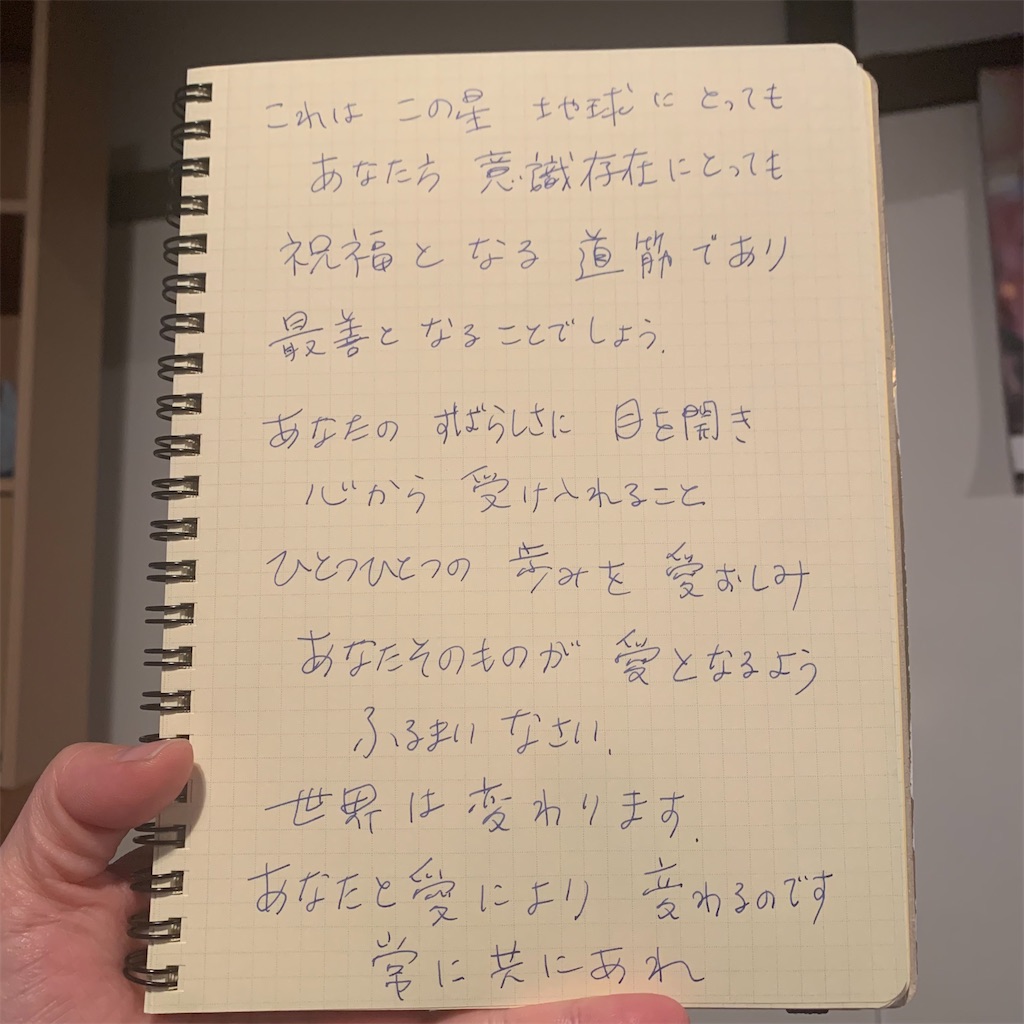 これは この星 地球に とっても
あなたち 意識存在にとっても
祝福と なる 道筋であり
最善と なることでしょう.
あなたの すばらしさに 目を開き
心から 受け入れること
ひとつひとつの 歩みを 愛おしみ
あなたそのものが 愛となるよう
ふるまい なさい.
世界は 変わります.
あなたと愛により 変わるのです
常に共にあれ